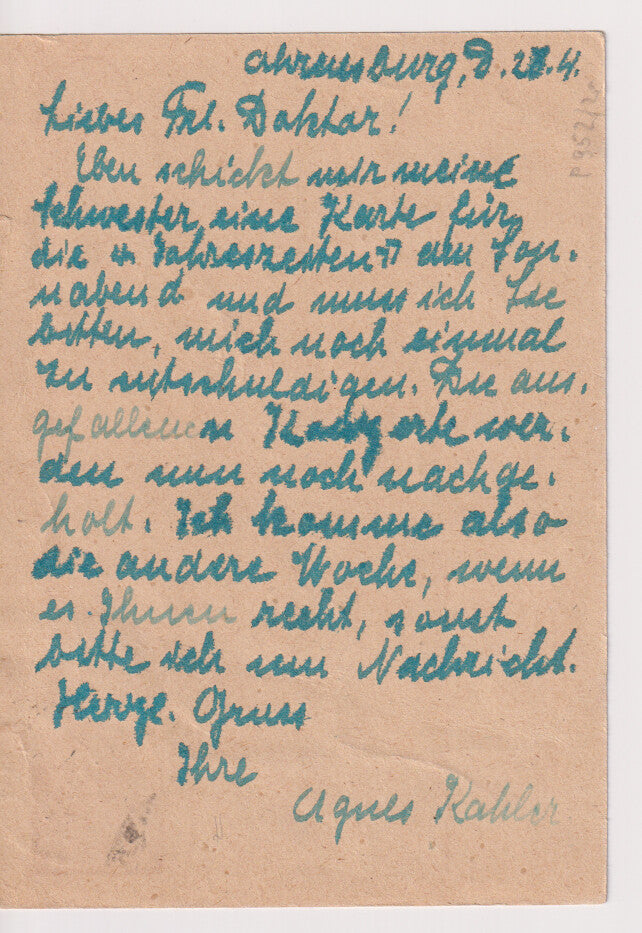 Ahrensburg, d. 28.4.
Liebes Frl. Doktor!
Eben schickt mir meine
Schwester eine Karte für
die „Jahreszeiten" am Son-
nabend und muss ich Sie
bitten, mich noch einmal
zu entschuldigen. Die aus-
gefallenen Konzerte wer-
den nun noch nachge-
holt. Ich komme also
die andere Woche, wenn
es Ihnen recht, sonst
bitte ich um Nachricht.
Herzl. Gruss
Ihre
Agnes Kähler
P 952/2